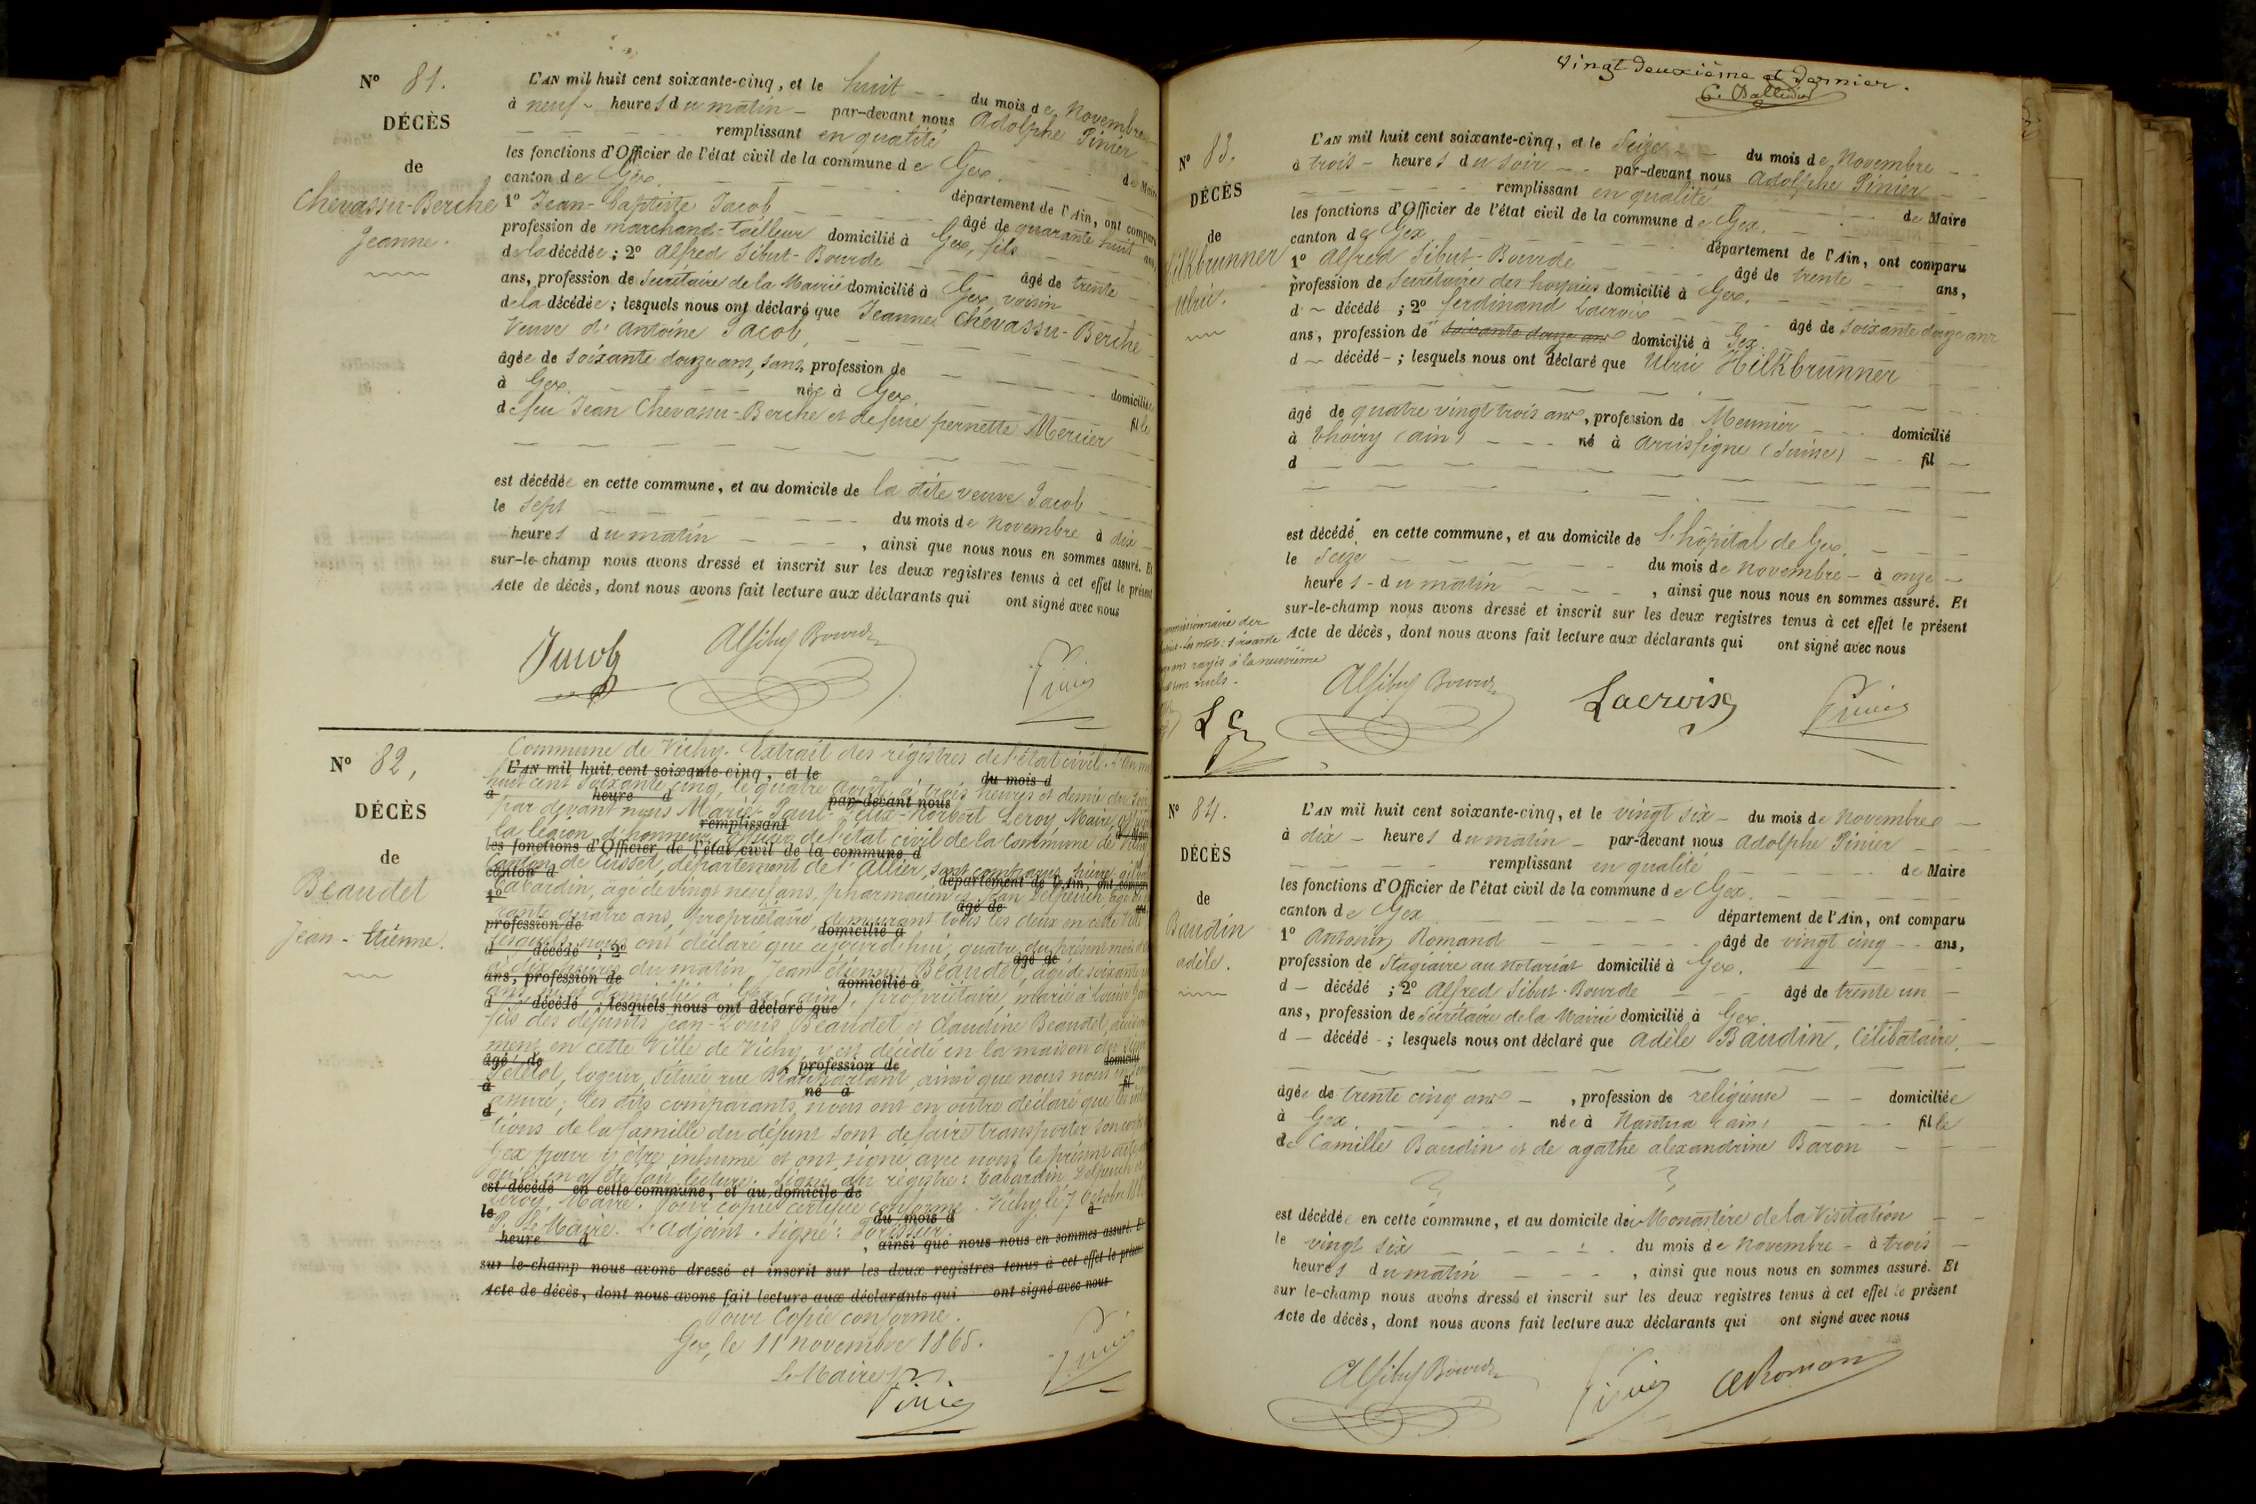 N° 81.
DÉCÈS
de
Chevassu-Berche
Jeanne.
L'AN mil huit cent soixante-cinq, et le huit du mois de Novembre
à neuf heures du matin par-devant nous Adolphe Pinier
remplissant en qualité de Maire
les fonctions d'Officier de l'état civil de la commune de Gex.
canton de Gex. département de l'Ain, ont comparu
1° Jean-Baptiste Jacob âgé de quarante huit ans,
profession de marchand-tailleur domicilié à Gex, fils
de la décédée ; 2° Alfred Sibut-Bourde âgé de trente
ans, profession de Secrétaire de la Mairie domicilié à Gex, voisin
de la décédée ; lesquels nous ont déclaré que Jeanne Chevassu-Berche
Veuve d'Antoine Jacob,
âgée de soixante douze ans, sans profession de domiciliée
à Gex. née à Gex. fille
de feu Jean Chevassu-Berche et de feue pernette Mercier
est décédée en cette commune, et au domicile de la dite veuve Jacob
le Sept du mois de Novembre à dix
heures du matin , ainsi que nous nous en sommes assuré. Et
sur-le-champ nous avons dressé et inscrit sur les deux registres tenus à cet effet le présent
Acte de décès, dont nous avons fait lecture aux déclarants qui ont signé avec nous
Jacob Alf Sibut Bourde Pinier
N° 82,
DÉCÈS
de
Beaudet
Jean-Etienne.
Commune de Vichy. Extrait des registres de l'état civil. L'an mil
L'AN mil huit cent soixante-cinq, et le du mois d
huit cent soixante cinq, le quatre Août, à trois heures et demie du soir
à heure d par-devant nous
par devant nous Marie Paul Félix-Norbert Leroy Maire,
remplissant
la légion d'honneur, officier de l'état civil de la Commune de Vichy
les fonctions d'Officier de l'état civil de la commune d
Canton de Cusset, département de l'Allier, sont comparus
canton d département de l'Ain, ont comparu
Cabardin, âgé de vingt neuf ans, pharmacien et Jean Delpeuch, âgé de
1° âgé de
rante quatre ans, propriétaire, demeurant tous les deux en cette Ville
profession de domicilié à
lesquels nous ont déclaré que cejourd'hui, quatre du présent mois
d décédé ; 2° âgé de
à dix heures du matin, Jean étienne Beaudet, âgé de soixante
ans, profession de domicilié à
ans, né et domicilié à Gex (Ain), propriétaire, marié à Louise
d décédé ; lesquels nous ont déclaré que
fils des défunts Jean-Louis Beaudet et Claudine Beaudet,
ment en cette Ville de Vichy, y est décédé en la maison du Sieur
âgé de , profession de domicilié
logeur, située rue ainsi que nous nous en
à né à fil
assuré ; les dits comparants nous ont en outre déclaré que les inten
d
tions de la famille du défunt sont de faire transporter son corps
Gex pour y être inhumé et ont signé avec nous le présent acte
qu'il en a été fait lecture. Signé au registre : Cabardin, Delpeuch et
est décédé en cette commune, et au domicile de
Leroy, Maire. Pour copie certifiée conforme. Vichy le 7 Octobre
le du mois d à
P. le Maire. L'adjoint. Signé :
heure d , ainsi que nous nous en sommes assuré. Et
sur le-champ nous avons dressé et inscrit sur les deux registres tenus à cet effet le présent
Acte de décès, dont nous avons fait lecture aux déclarants qui ont signé avec nous
Pour Copie conforme.
Gex, le 11 novembre 1865.
Le Maire
Pinier
Pinier
Vingt deuxième et dernier.
N° 83.
DÉCÈS
de
Hilkbrunner
Ulric.
L'AN mil huit cent soixante-cinq, et le Seize du mois de Novembre
à trois heures du soir par-devant nous Adolphe Pinier
remplissant en qualité de Maire
les fonctions d'Officier de l'état civil de la commune de Gex.
canton de Gex département de l'Ain, ont comparu
1° Alfred Sibut-Bourde âgé de trente ans,
profession de Secrétaire des hospices domicilié à Gex.
d décédé ; 2° ferdinand Lacroix âgé de soixante douze ans
ans, profession de soixante douze ans domicilié à Gex.
d décédé ; lesquels nous ont déclaré que Ulric Hilkbrunner
âgé de quatre vingt trois ans, profession de Meunier domicilié
à Thoiry (ain) né à (Suisse) fil
d
est décédé en cette commune, et au domicile de l'hôpital de Gex.
le Seize du mois de Novembre à onze
heures du matin , ainsi que nous nous en sommes assuré. Et
sur-le-champ nous avons dressé et inscrit sur les deux registres tenus à cet effet le présent
Acte de décès, dont nous avons fait lecture aux déclarants qui ont signé avec nous
commissionnaire des
les mots : soixante
ans rayés à la neuvième
nuls.
L
Alf Sibut Bourde Lacroix Pinier
N° 84.
DÉCÈS
de
Baudin
adèle.
L'AN mil huit cent soixante-cinq, et le vingt six du mois de Novembre
à dix heures du matin par-devant nous Adolphe Pinier
remplissant en qualité de Maire
les fonctions d'Officier de l'état civil de la commune de Gex.
canton de Gex département de l'Ain, ont comparu
1° Antonin Romand âgé de vingt cinq ans,
profession de Stagiaire au notariat domicilié à Gex.
d décédé ; 2° Alfred Sibut-Bourde âgé de trente un
ans, profession de Secrétaire de la Mairie domicilié à Gex
d décédé ; lesquels nous ont déclaré que Adèle Baudin, Célibataire,
âgée de trente cinq ans , profession de religieuse domiciliée
à Gex. née à Nantua (ain) fille
de Camille Baudin et de agathe alexandrine Baron
est décédée en cette commune, et au domicile du Monastère de la Visitation
le vingt six du mois de Novembre à trois
heures du matin , ainsi que nous nous en sommes assuré. Et
sur le-champ nous avons dressé et inscrit sur les deux registres tenus à cet effet le présent
Acte de décès, dont nous avons fait lecture aux déclarants qui ont signé avec nous
Alf Sibut Bourde Pinier A Romand